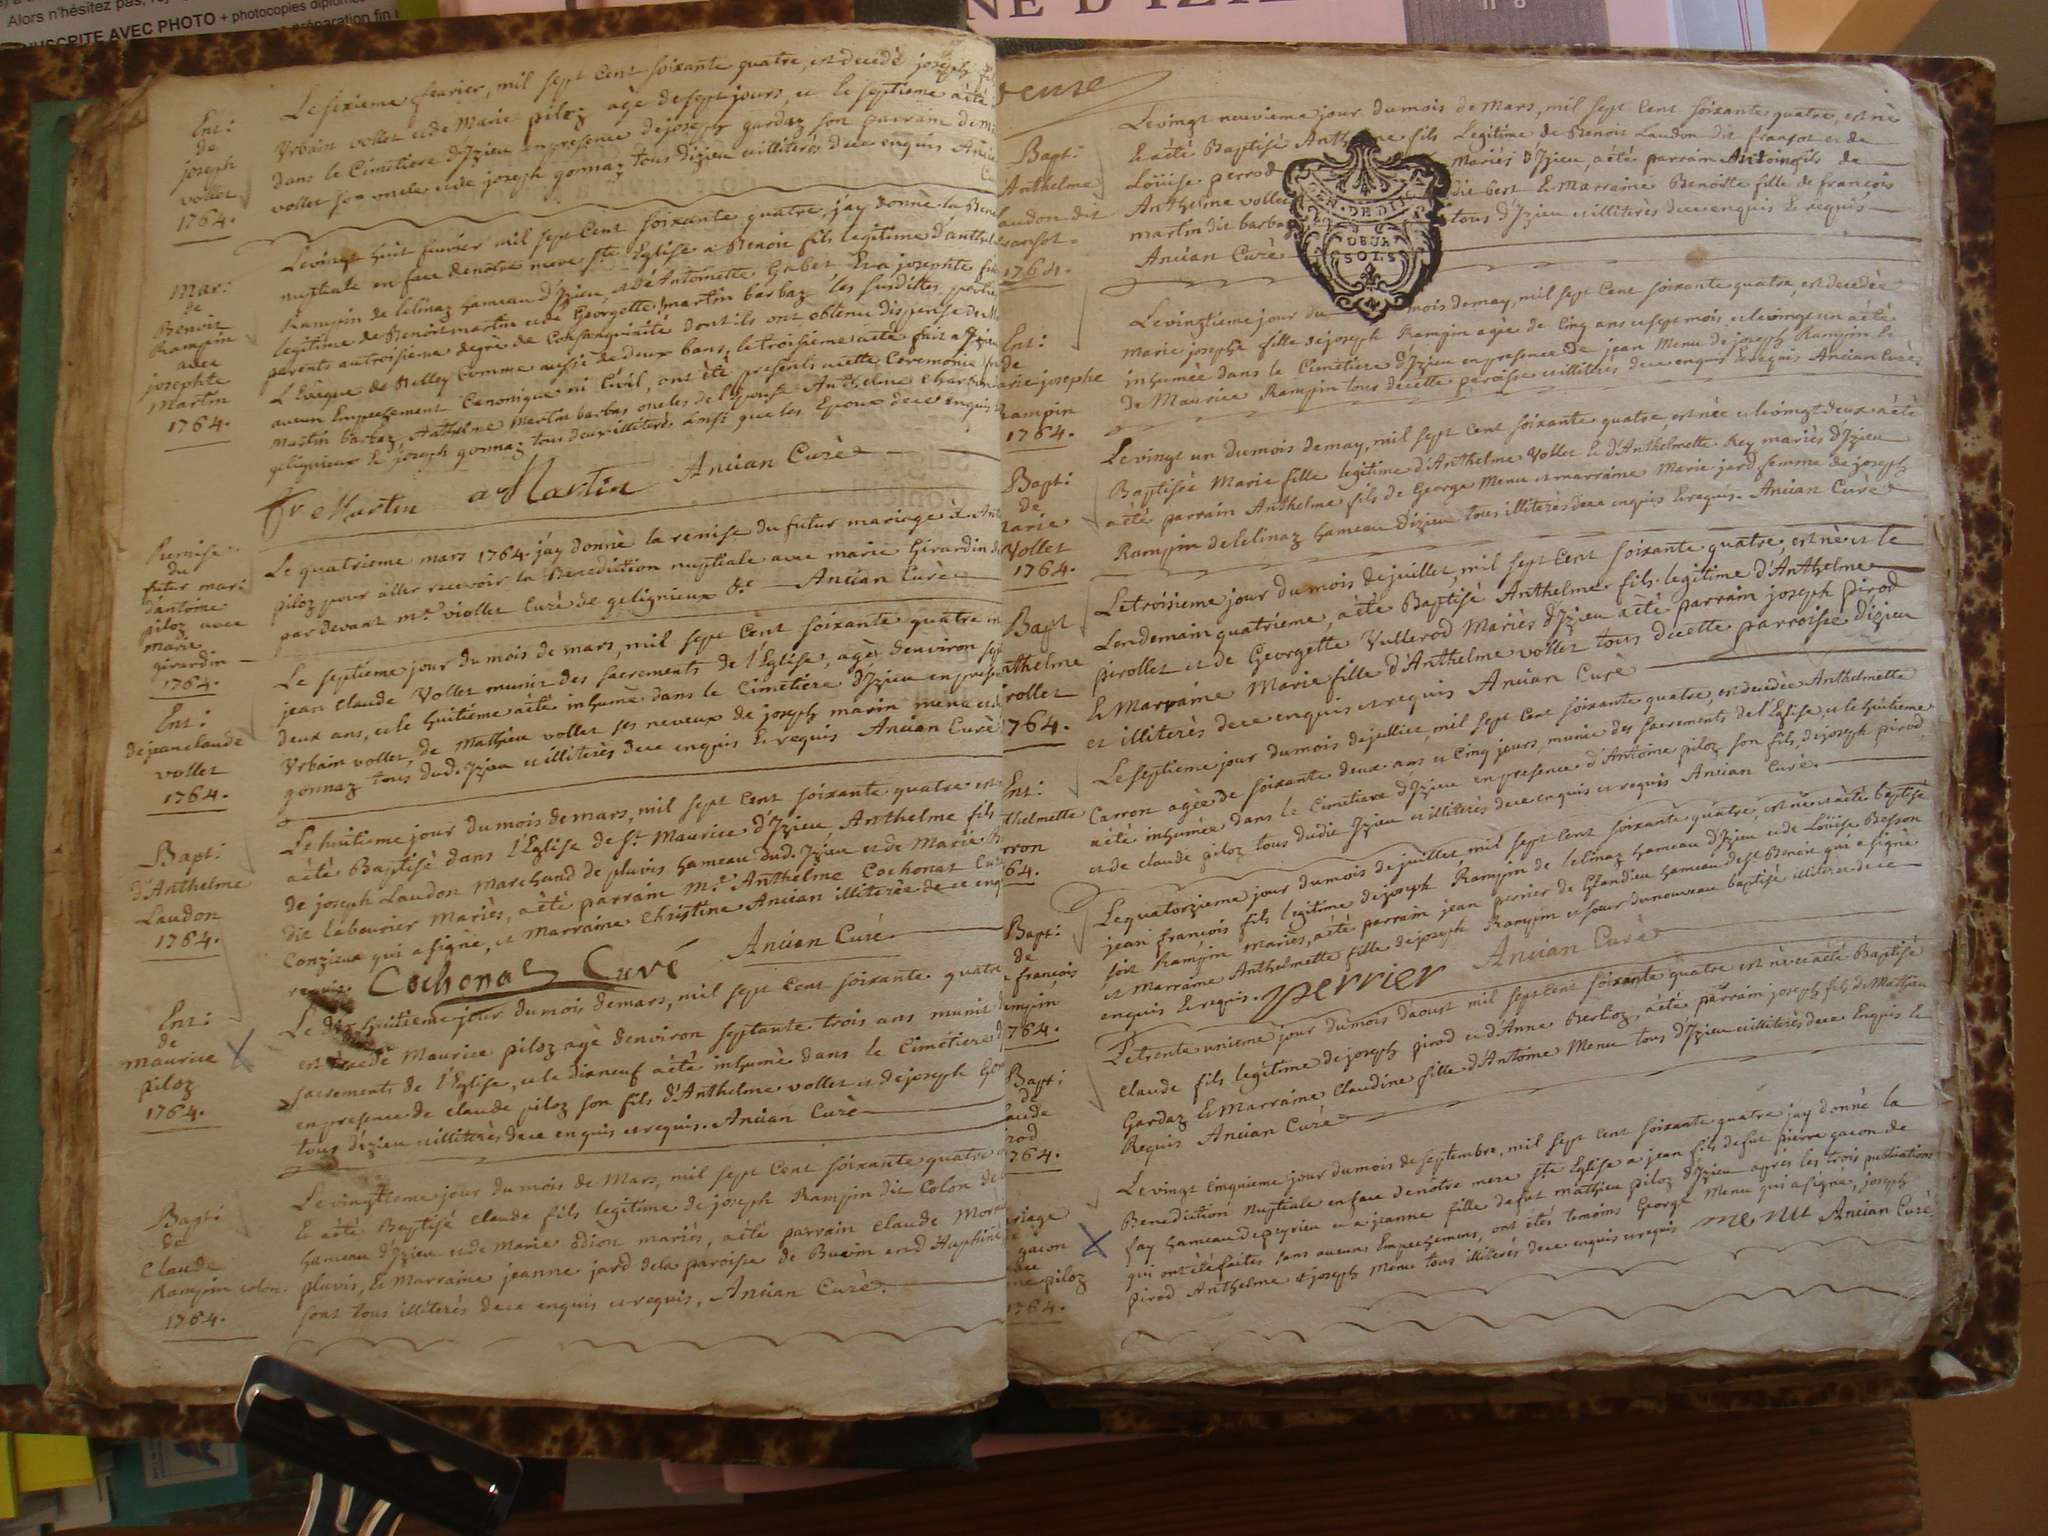 Alors n'hésitez pas,
NUSCRITE AVEC PHOTO + photocopies diplômes
préparation fin
Ent:
de
joseph
vollet
1764.
Le sixieme fevrier, mil sept Cent soixante quatre, est decedé joseph fil
Urbain vollet et de Marie piloz agè de sept jours, et le septieme aété
dans le Cimetiere d'Izieu en presence de joseph gardaz son parrain de
vollet son oncle et de joseph gonnaz tous d'izieu et illiterès de ce enquis
Mar:
de
Benoit
Rampin
avec
josephte
Martin
1764.
Le vingt huit fevrier mil sept Cent soixante quatre, jay donné la Bene
nuptiale en face de notre mere ste Eglise a Benoit fils legitime d'anthel
Rampin de lelinaz hameau d'Izieu, et d'Antoinette Gabet Et a josephte fil
legitime de Benoit martin et de Georgette martin barbaz les susdittes parties
parents au troisieme degrè de Consanguinité dont ils ont obtenu dispense de M
L'Evêque de Belley comme aussi de deux bans, le troisieme aété fait a Izieu
aucun Empechement Canonique ni Civil, ont été presents acette Ceremonie
martin barbaz, Anthelme Martin barbas oncles de l'Epouse Anthelme Charbon
gelignieux & joseph gonnaz tous deux illiterès ainsi que les Epoux de ce enquis
fr Martin a Martin Ancian Curè
Remise
du
futur mari:
d'antoine
piloz avec
marie
girardin
1764.
Le quatrieme mars 1764. j'ay donnè la remise du futur mariage d'Ant
piloz pour aller recevoir la Benediction nuptiale avec marie Girardin de
par devant mr. viollet Curè de gelignieux &c Ancian Curè
Ent:
de jean claude
vollet
1764.
Le septieme jour du mois de mars, mil sept Cent soixante quatre
jean Claude Vollet munis des sacrements de l'Eglise, agè d'environ sept
deux ans, et le huitieme aété inhumè dans le Cimetiere d'Izieu en presen
Urbain vollet, de Mathieu vollet ses neveux de joseph marin menu et
gonnaz tous dud. Izieu et illiterès de ce enquis & requis Ancian Curè
Bapt:
d'Anthelme
Laudon
1764.
Le huitieme jour du mois de mars, mil sept Cent soixante quatre est
aété Baptisè dans l'Eglise de St. Maurice d'Izieu, Anthelme fils
de joseph Laudon Marchand de pluvis hameau dud. Izieu et de Marie
dit labourier Mariès, aété parrain Mre Anthelme Cochonat Curè
Conzieux qui a signè, et Marraine Christine Ancian illiterèe de ce enq
requis. Cochonat Curé Ancian Curè
Ent:
de
Maurice
piloz
1764.
Le dix huitieme jour du mois de mars, mil sept Cent soixante quatre
est decedè Maurice piloz agè d'environ septante trois ans munis
sacrements de l'Eglise, et le dixneuf aété inhumè dans le Cimétiere
en presence de Claude piloz son fils d'Anthelme vollet et de joseph Gon
tous d'izieu et illiterès de ce enquis et requis. Ancian Curè
Bapt:
de
Claude
Rampin colon.
1764.
Le vingtieme jour du mois de Mars, mil sept Cent soixante quatre
& aété Baptisè Claude fils legitime de joseph Rampin dit Colon de
hameau d'Izieu et de Marie Odion mariès, aété parrain Claude
pluvis, & Marraine jeanne jard de la paroisse de Buein en Dauphiné
sont tous illiterès de ce enquis et requis, Ancian Curè.
Bapt:
d'Anthelme
laudon dit
fransot
1764.
Le vingt neuvieme jour du mois de Mars, mil sept Cent soixante quatre, est nè
& aété Baptisè Anthelme fils Legitime de Benoit Laudon dit fransot et de
Loüise perrod mariès d'Izieu, aété parrain Antoine fils de
Anthelme vollet dit bert & Marraine Benoitte fille de francois
martin dit barbaz tous d'Izieu et illiterès de ce enquis & requis
Ancian Curè
GEN. DE DIJON
DEUX
SOLS
Ent:
de
Marie josephe
Rampin
1764.
Le vingtieme jour du mois de may, mil sept Cent soixante quatre, est decedèe
marie josephe fille de joseph Rampin agèe de Cinq ans et sept mois et le vingt un aété
inhumèe dans le Cimetiere d'Izieu en presence de jean Menu de joseph Rampin &
de Maurice Rampin tous de cette paroisse et illiterès de ce enquis & requis Ancian Curè
Bapt:
de
Marie
Vollet
1764.
Le vingt un du mois de may, mil sept Cent soixante quatre, est nèe et le vingt deux aété
Baptisèe Marie fille legitime d'Anthelme Vollet & d'Anthelmette Rey mariès d'Izieu
aété parrain Anthelme fils de George Menu et marraine Marie jard femme de joseph
Rampin de lelinaz hameau d'izieu tous illiterès de ce enquis & requis. Ancian Curè
Bapt
Anthelme
pirollet
1764.
Le troisieme jour du mois de juillet, mil sept Cent soixante quatre, est nè et le
Lendemain quatrieme, aété Baptisè Anthelme fils legitime d'Anthelme
pirollet et de Georgette Vullerod Mariès d'Izieu aété parrain joseph pirod
& Marraine Marie fille d'Anthelme vollet tous de cette parroisse d'izieu
et illiterès de ce enquis et requis Ancian Curè
Ent:
Anthelmette
Carron
1764.
Le septieme jour du mois de juillet, mil sept Cent soixante quatre, est decedèe Anthelmette
Carron agèe de soixante deux ans et Cinq jours, munie des sacrements de l'Eglise et le huitieme
aété inhumèe dans le Cimetiere d'Izieu en presence d'Antoine piloz son fils, de joseph pirod,
et de claude piloz tous dudit Izieu et illiterès de ce enquis et requis Ancian Curè.
Bapt:
de
jean françois
Rampin
1764.
Le quatorzieme jour du mois de juillet mil sept Cent soixante quatre, est nè et aété baptisè
jean francois fils legitime de joseph Rampin de lelinaz hameau d'Izieu et de Loüise Besson
soit Rampin mariès, aété parrain jean perrier de Glandieu hameau de st Benoit qui a signè
et Marraine Anthelmette fille de joseph Rampin et soeur du nouveau baptisè illiterèe de ce
enquis & requis. perrier Ancian Curè
Bapt:
de
Claude
pirod
1764.
Le trente unieme jour du mois d'aoust mil sept Cent soixante quatre est nè et aété Baptisè
Claude fils legitime de joseph pirod et d'Anne Berlioz, aété parrain joseph fils de Mathieu
Gardaz & Marraine Claudine fille d'Antoine Menu tous d'Izieu et illiterès de ce Enquis &
Requis Ancian Curè
Mariage
gacon
piloz
1764.
Le vingt Cinquieme jour du mois de septembre, mil sept Cent soixante quatre jay donnè la
Benediction Nuptiale en face de nôtre mere ste Eglise a jean fils de fut pierre gacon de
fay hameau de peyrieu et a jeanne fille de fut mathieu piloz d'Izieu aprés les trois publications
qui ont été faites sans aucuns Empechements, ont étés temoins George Menu qui a signè, joseph
pirod Anthelme & joseph Menu tous illiterès de ce enquis et requis menu Ancian Curè